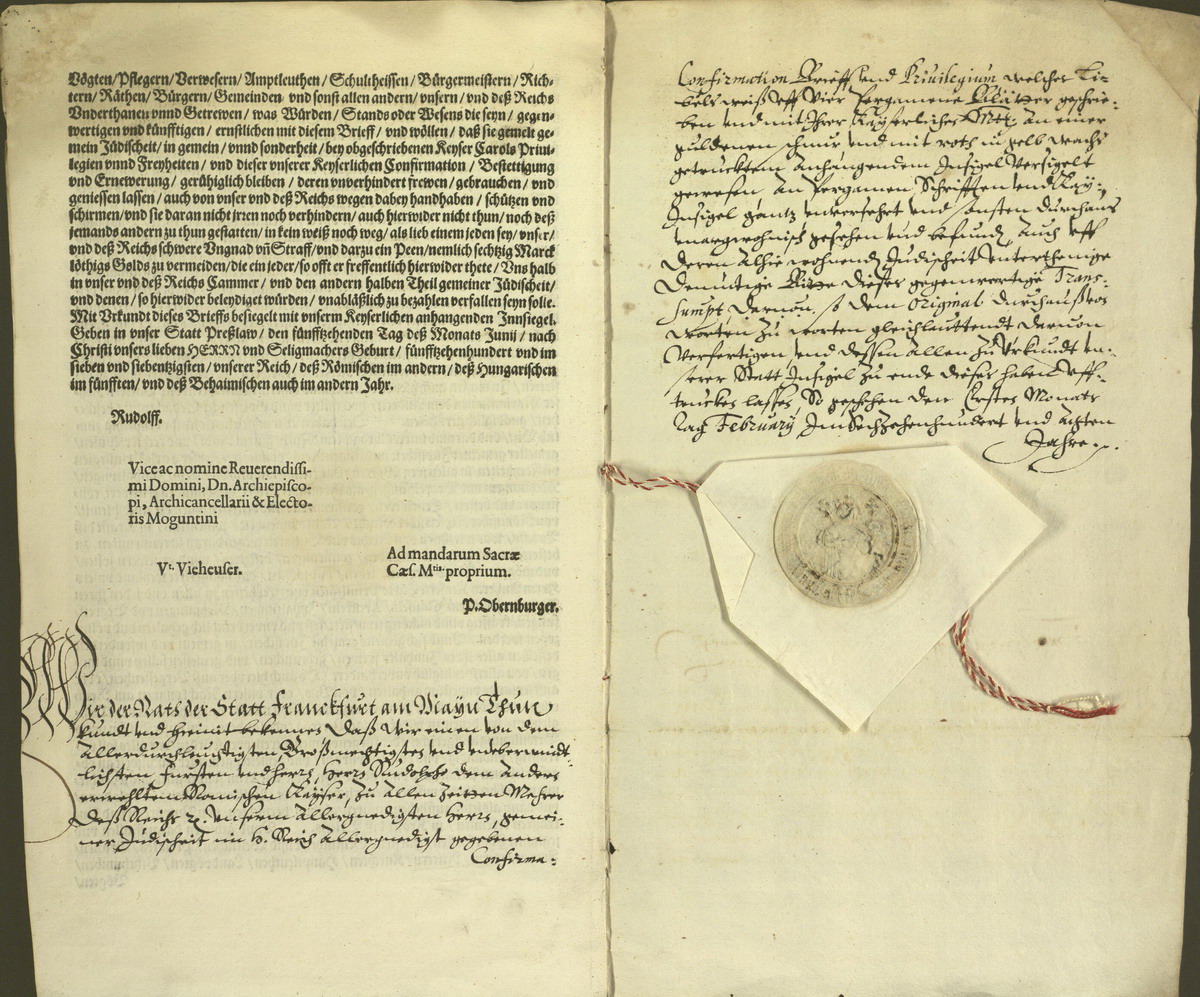 Vögten/Pflegern/Verwesern/Amptleuthen/Schultheissen/Bürgermeistern/Rich-
tern/Räthen/Bürgern/Gemeinden vnd sonst allen andern/vnsern/vnd deß Reichs
Vnderthanen vnnd Getrewen/was Würden/Stands oder Wesens die seyn/gegen-
wertigen vnd künfftigen/ernstlichen mit diesem Brieff/vnd wöllen/daß sie gemelt ge-
mein Jüdischeit/in gemein/vnnd sonderheit/bey obgeschriebenen Keyser Carols Priui-
legien vnnd Freyheiten/vnd dieser vnserer Keyserlichen Confirmation/Bestettigung
vnd Ernewerung/gerühiglich bleiben/deren vnverhindert frewen/gebrauchen/vnd
geniessen lassen/auch von vnser vnd deß Reichs wegen dabey handhaben/schützen vnd
schirmen/vnd sie daran nicht irren noch verhindern/auch hierwider nicht thun/noch deß
jemands andern zu thun gestatten/in kein weiß noch weg/als lieb einem jeden sey/vnser/
vnd deß Reichs schwere Vngnad vñ Straff/vnd darzu ein Peen/nemlich sechtzig Marck
löthigs Golds zu vermeiden/die ein jeder/so offt er freffentlich hierwider thete/Vns halb
in vnser vnd deß Reichs Cammer/vnd den andern halben Theil gemeiner Jüdischeit/
vnd denen/so hierwider beleydiget würden/vnabläßlich zu bezahlen verfallen seyn solle.
Mit Vrkundt dieses Brieffs besiegelt mit vnserm Keyserlichen anhangenden Innsiegel.
Geben in vnser Statt Preßlaw/den fünfftzehenden Tag deß Monats Junij/nach
Christi vnsers lieben HERRN vnd Seligmachers Geburt/fünfftzehenhundert vnd im
sieben vnd siebentzigsten/vnserer Reich/deß Römischen im andern/deß Hungarischen
im fünfften/vnd deß Behaimischen auch im andern Jahr.
Rudolff.
Vice ac nomine Reuerendissi-
mi Domini, Dn. Archiepisco-
pi, Archicancellarii & Electo-
ris Moguntini
Vt. Vieheuser.
Ad mandarum Sacræ
Cæs. Mtis. proprium.
P. Obernburger.
Wir der Rats der Statt Franckfurt am Mayn Thun
kundt vnd hiemit bekennen Daß Wir einen von dem
Allerdurchleuchtigsten Großmechtigsten vnd vnüberwindt-
lichsten Fursten vnd Herrn, Herrn Rudolphe dem Andern
erwehltem Romischen Kayser, zu allen Zeitten Mehrer
deß Reichs ꝛc. vnserm Allergnedigsten Herrn, gemei-
ner Judischeit im H. Reich Allergnedigst gegebenen
Confirma-
Confirmation Brieff vnd Priuilegium welcher Li-
bels weiß vff Vier Pergamene Blätter geschrie-
ben vnd mit Ihrer Kayserlichen Mtt: An einer
guldenen schnur vnd mit roth in gelb wachs
getrucktem Anhangendem Insigel Versigelt
gewesen An Pergamen Schrifften vnd Kay:
Insigel gantz vnversehrt vnd sonsten durchaus
vnargwohnisch gesehen vnd befunden, Auch vff
deren Alhie wohnenden Judischeit vnterthenige
Demütige Bitte dieser gegenwertige Trans-
sumpt darvon, so dem Original durchauß von
worten zu worten gleichlauttendt darvon
Verfertigen vnd dessen Allen zu Vrkundt vn-
serer Statt Insigel zu ende dieser haben vff-
trucken lassen, So geschehen den Ersten Monats
Tag February Im Sechzehenhundert vnd Achten
Jahre